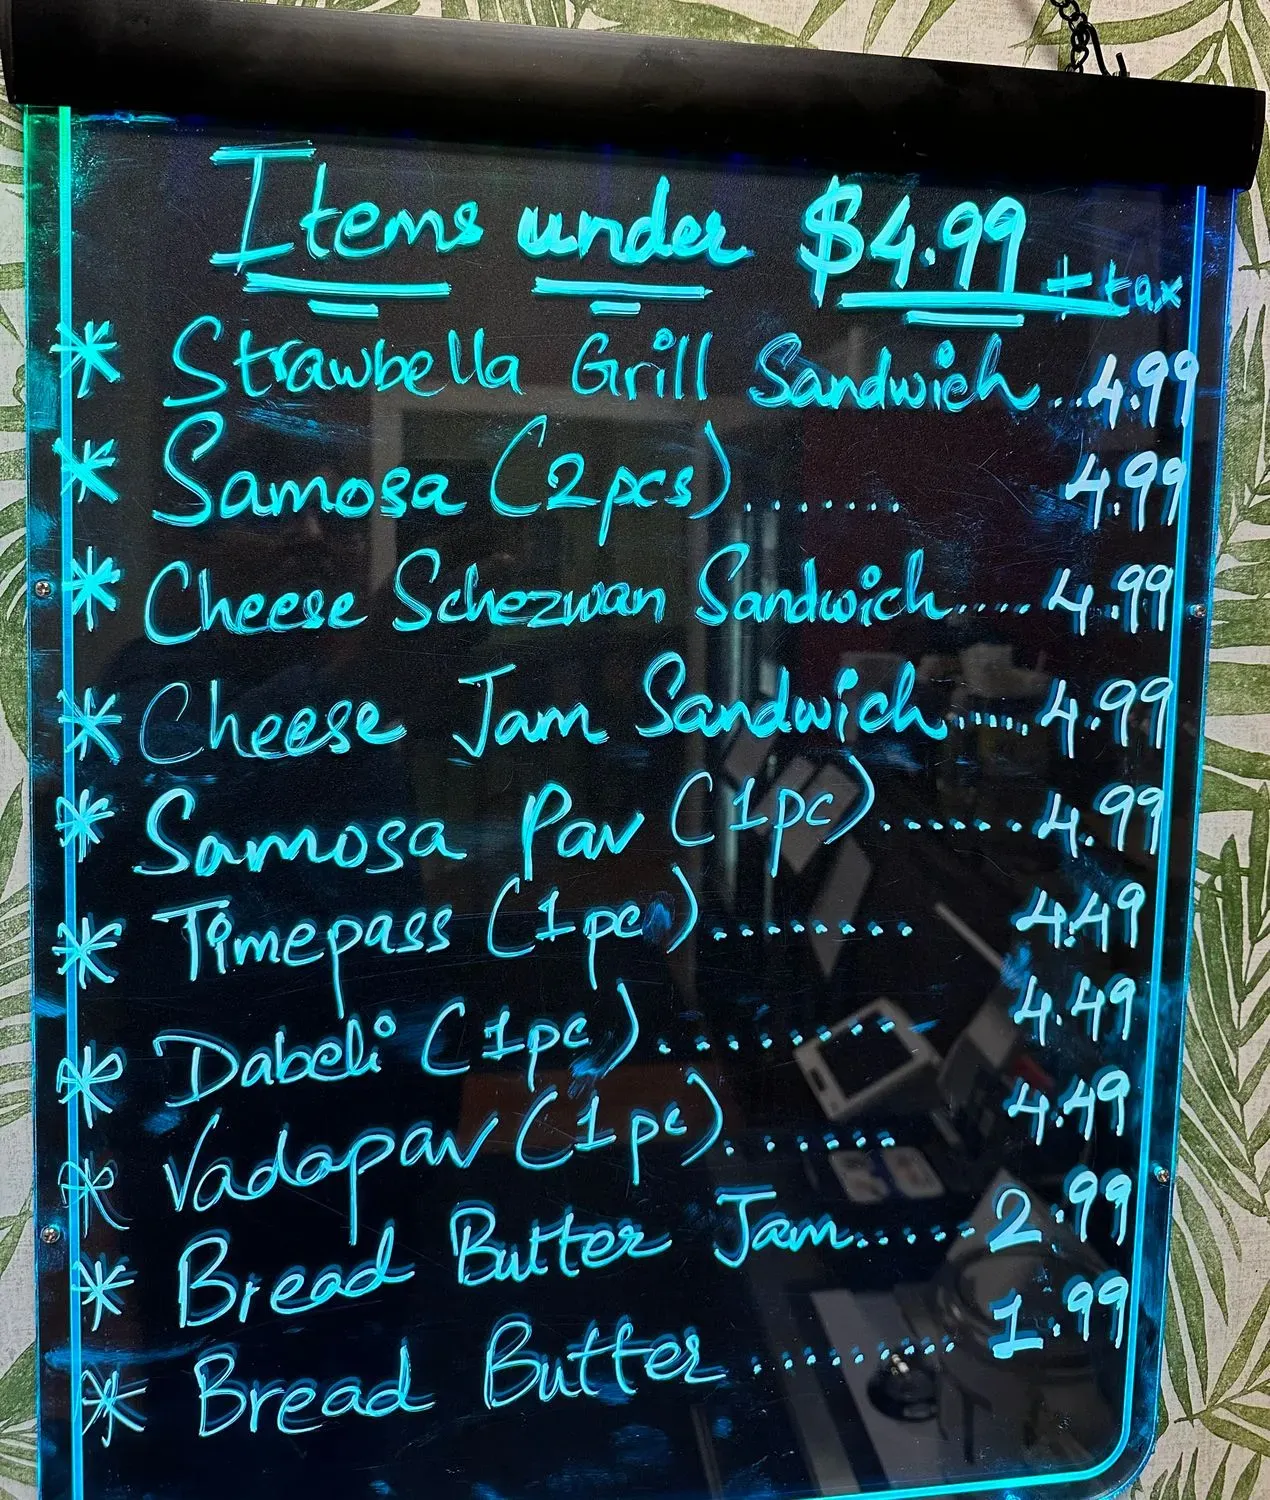 Items under $4.99 + tax
* Strawbella Grill Sandwich...4.99
* Samosa (2pcs)....... 4.99
* Cheese Schezwan Sandwich....4.99
* Cheese Jam Sandwich.....4.99
* Samosa Pav (1pc)......4.99
* Timepass (1pc)........ 4.49
* Dabeli (1pc)....... 4.49
* Vadapav (1pc)....... 4.49
* Bread Butter Jam.....2.99
* Bread Butter.........1.99